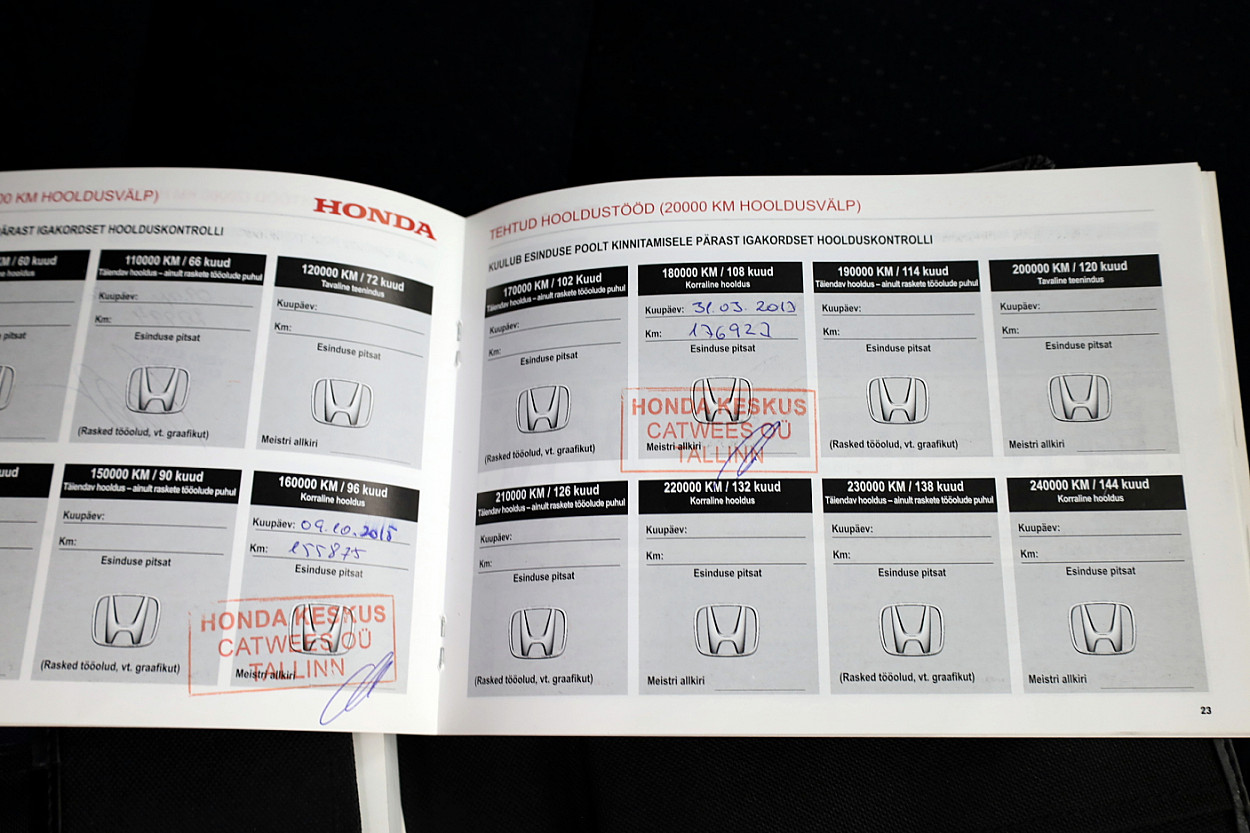 00 KM HOOLDUSVÄLP)
HONDA
PÄRAST IGAKORDSET HOOLDUSKONTROLLI
KM / 60 kuud
hooldus
pitsat
110000 KM / 66 kuud
Täiendav hooldus – ainult raskete tööolude puhul
Kuupäev:
Km:
Esinduse pitsat
(Rasked tööolud, vt. graafikut)
120000 KM / 72 kuud
Tavaline teenindus
Kuupäev:
Km:
Esinduse pitsat
Meistri allkiri
kuud
150000 KM / 90 kuud
Täiendav hooldus – ainult raskete tööolude puhul
Kuupäev:
Km:
Esinduse pitsat
(Rasked tööolud, vt. graafikut)
160000 KM / 96 kuud
Korraline hooldus
Kuupäev: 09.10.2015
Km: 155875
Esinduse pitsat
HONDA KESKUS
CATWEES OÜ
TALLINN
Meistri allkiri
TEHTUD HOOLDUSTÖÖD (20000 KM HOOLDUSVÄLP)
KUULUB ESINDUSE POOLT KINNITAMISELE PÄRAST IGAKORDSET HOOLDUSKONTROLLI
170000 KM / 102 Kuud
Täiendav hooldus – ainult raskete tööolude puhul
Kuupäev:
Km:
Esinduse pitsat
(Rasked tööolud, vt. graafikut)
180000 KM / 108 kuud
Korraline hooldus
Kuupäev: 31.03.
Km: 176927
Esinduse pitsat
HONDA KESKUS
CATWEES OÜ
TALLINN
Meistri allkiri
190000 KM / 114 kuud
Täiendav hooldus – ainult raskete tööolude puhul
Kuupäev:
Km:
Esinduse pitsat
(Rasked tööolud, vt. graafikut)
200000 KM / 120 kuud
Tavaline teenindus
Kuupäev:
Km:
Esinduse pitsat
Meistri allkiri
210000 KM / 126 kuud
Täiendav hooldus – ainult raskete tööolude puhul
Kuupäev:
Km:
Esinduse pitsat
(Rasked tööolud, vt. graafikut)
220000 KM / 132 kuud
Korraline hooldus
Kuupäev:
Km:
Esinduse pitsat
Meistri allkiri
230000 KM / 138 kuud
Täiendav hooldus – ainult raskete tööolude puhul
Kuupäev:
Km:
Esinduse pitsat
(Rasked tööolud, vt. graafikut)
240000 KM / 144 kuud
Korraline hooldus
Kuupäev:
Km:
Esinduse pitsat
Meistri allkiri
23